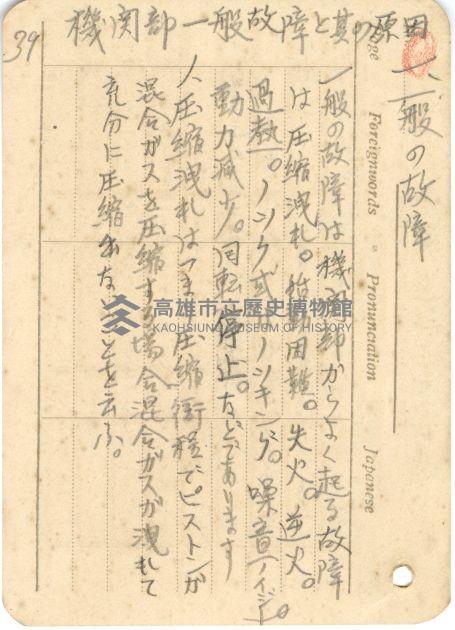 39
機関部一般故障と其の原因
一、一般の故障
一般の故障は機関部からよく起る故障
は圧縮洩れ。始動困難。失火。逆火。
過熱。ノック或はノッキング。噪音
動力減少。回転停止。などであります
一、圧縮洩れはつまり圧縮衝程でピストンが
混合ガスを圧縮する場合混合ガスが洩れて
充分に圧縮出ないことを云ふ。
Page
Foreignwords
Pronunciation
Japanese
高雄市立歷史博物館
KAOHSIUNG MUSEUM OF HISTORY